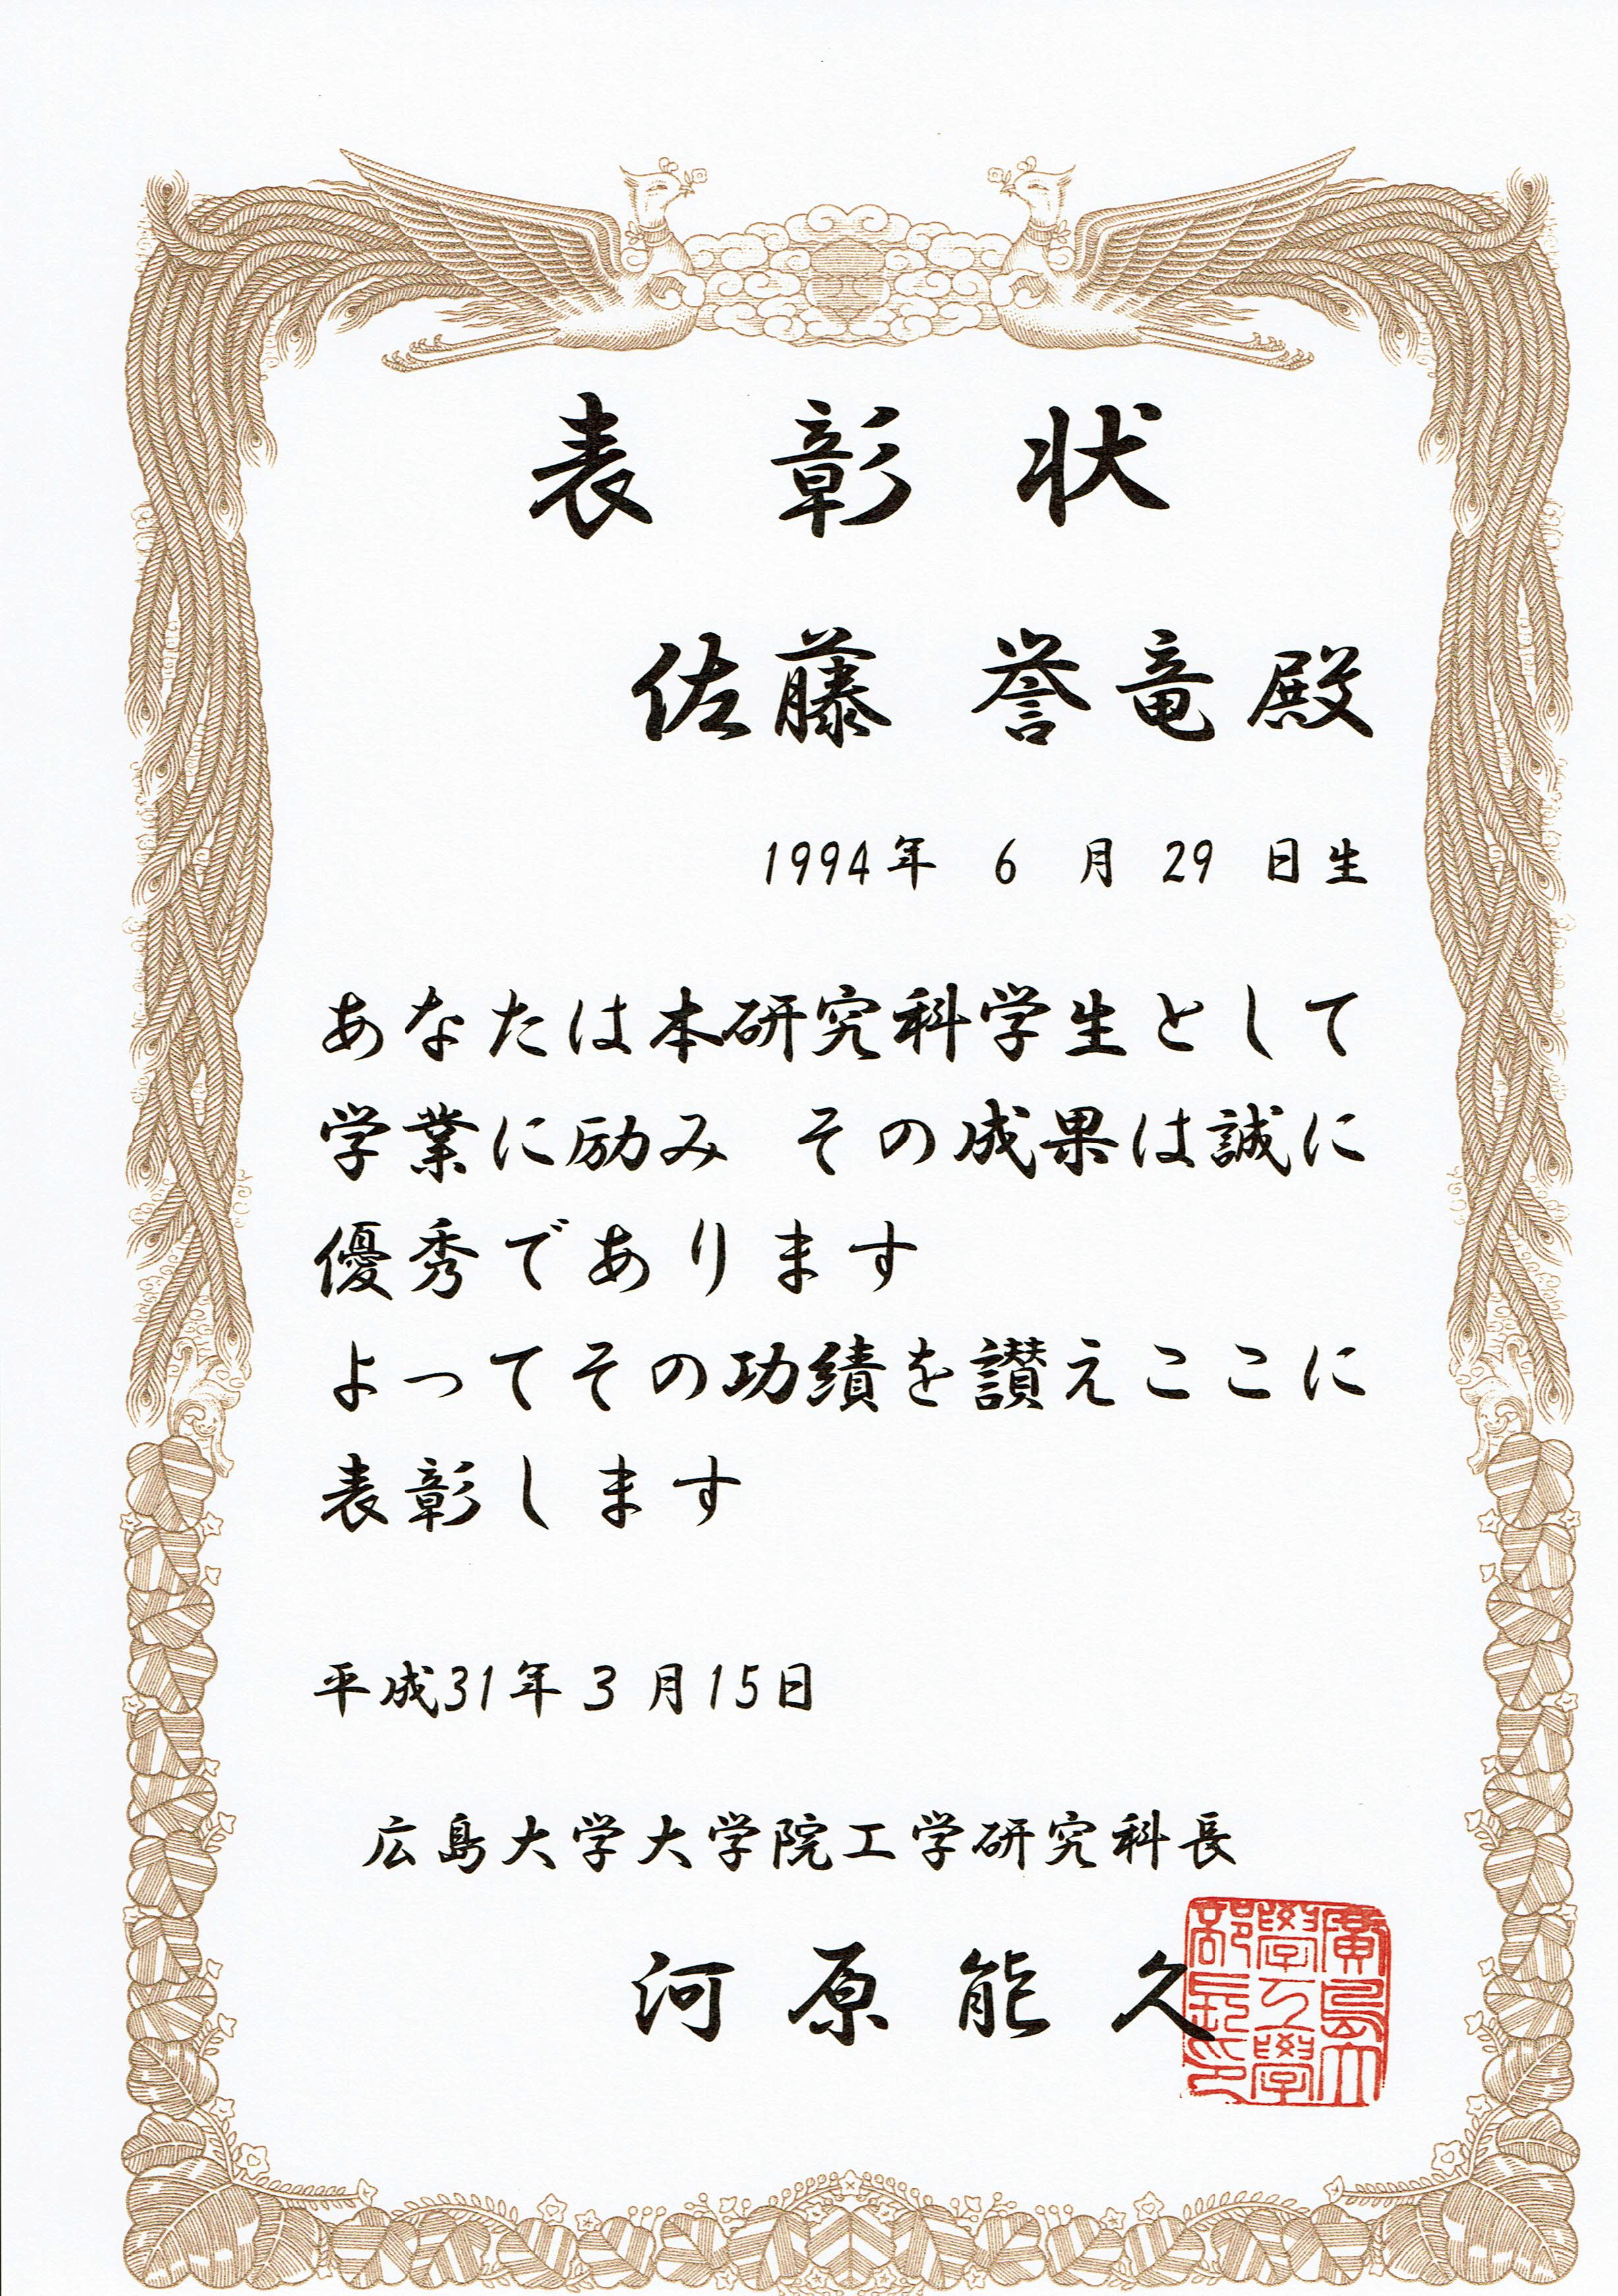 表彰状
佐藤 誉竜殿
1994年 6 月 29 日生
あなたは本研究科学生として
学業に励み その成果は誠に
優秀であります
よってその功績を讃えここに
表彰します
平成31年3月15日
広島大学大学院工学研究科長
河原能久
廣島大
學工學
部長印